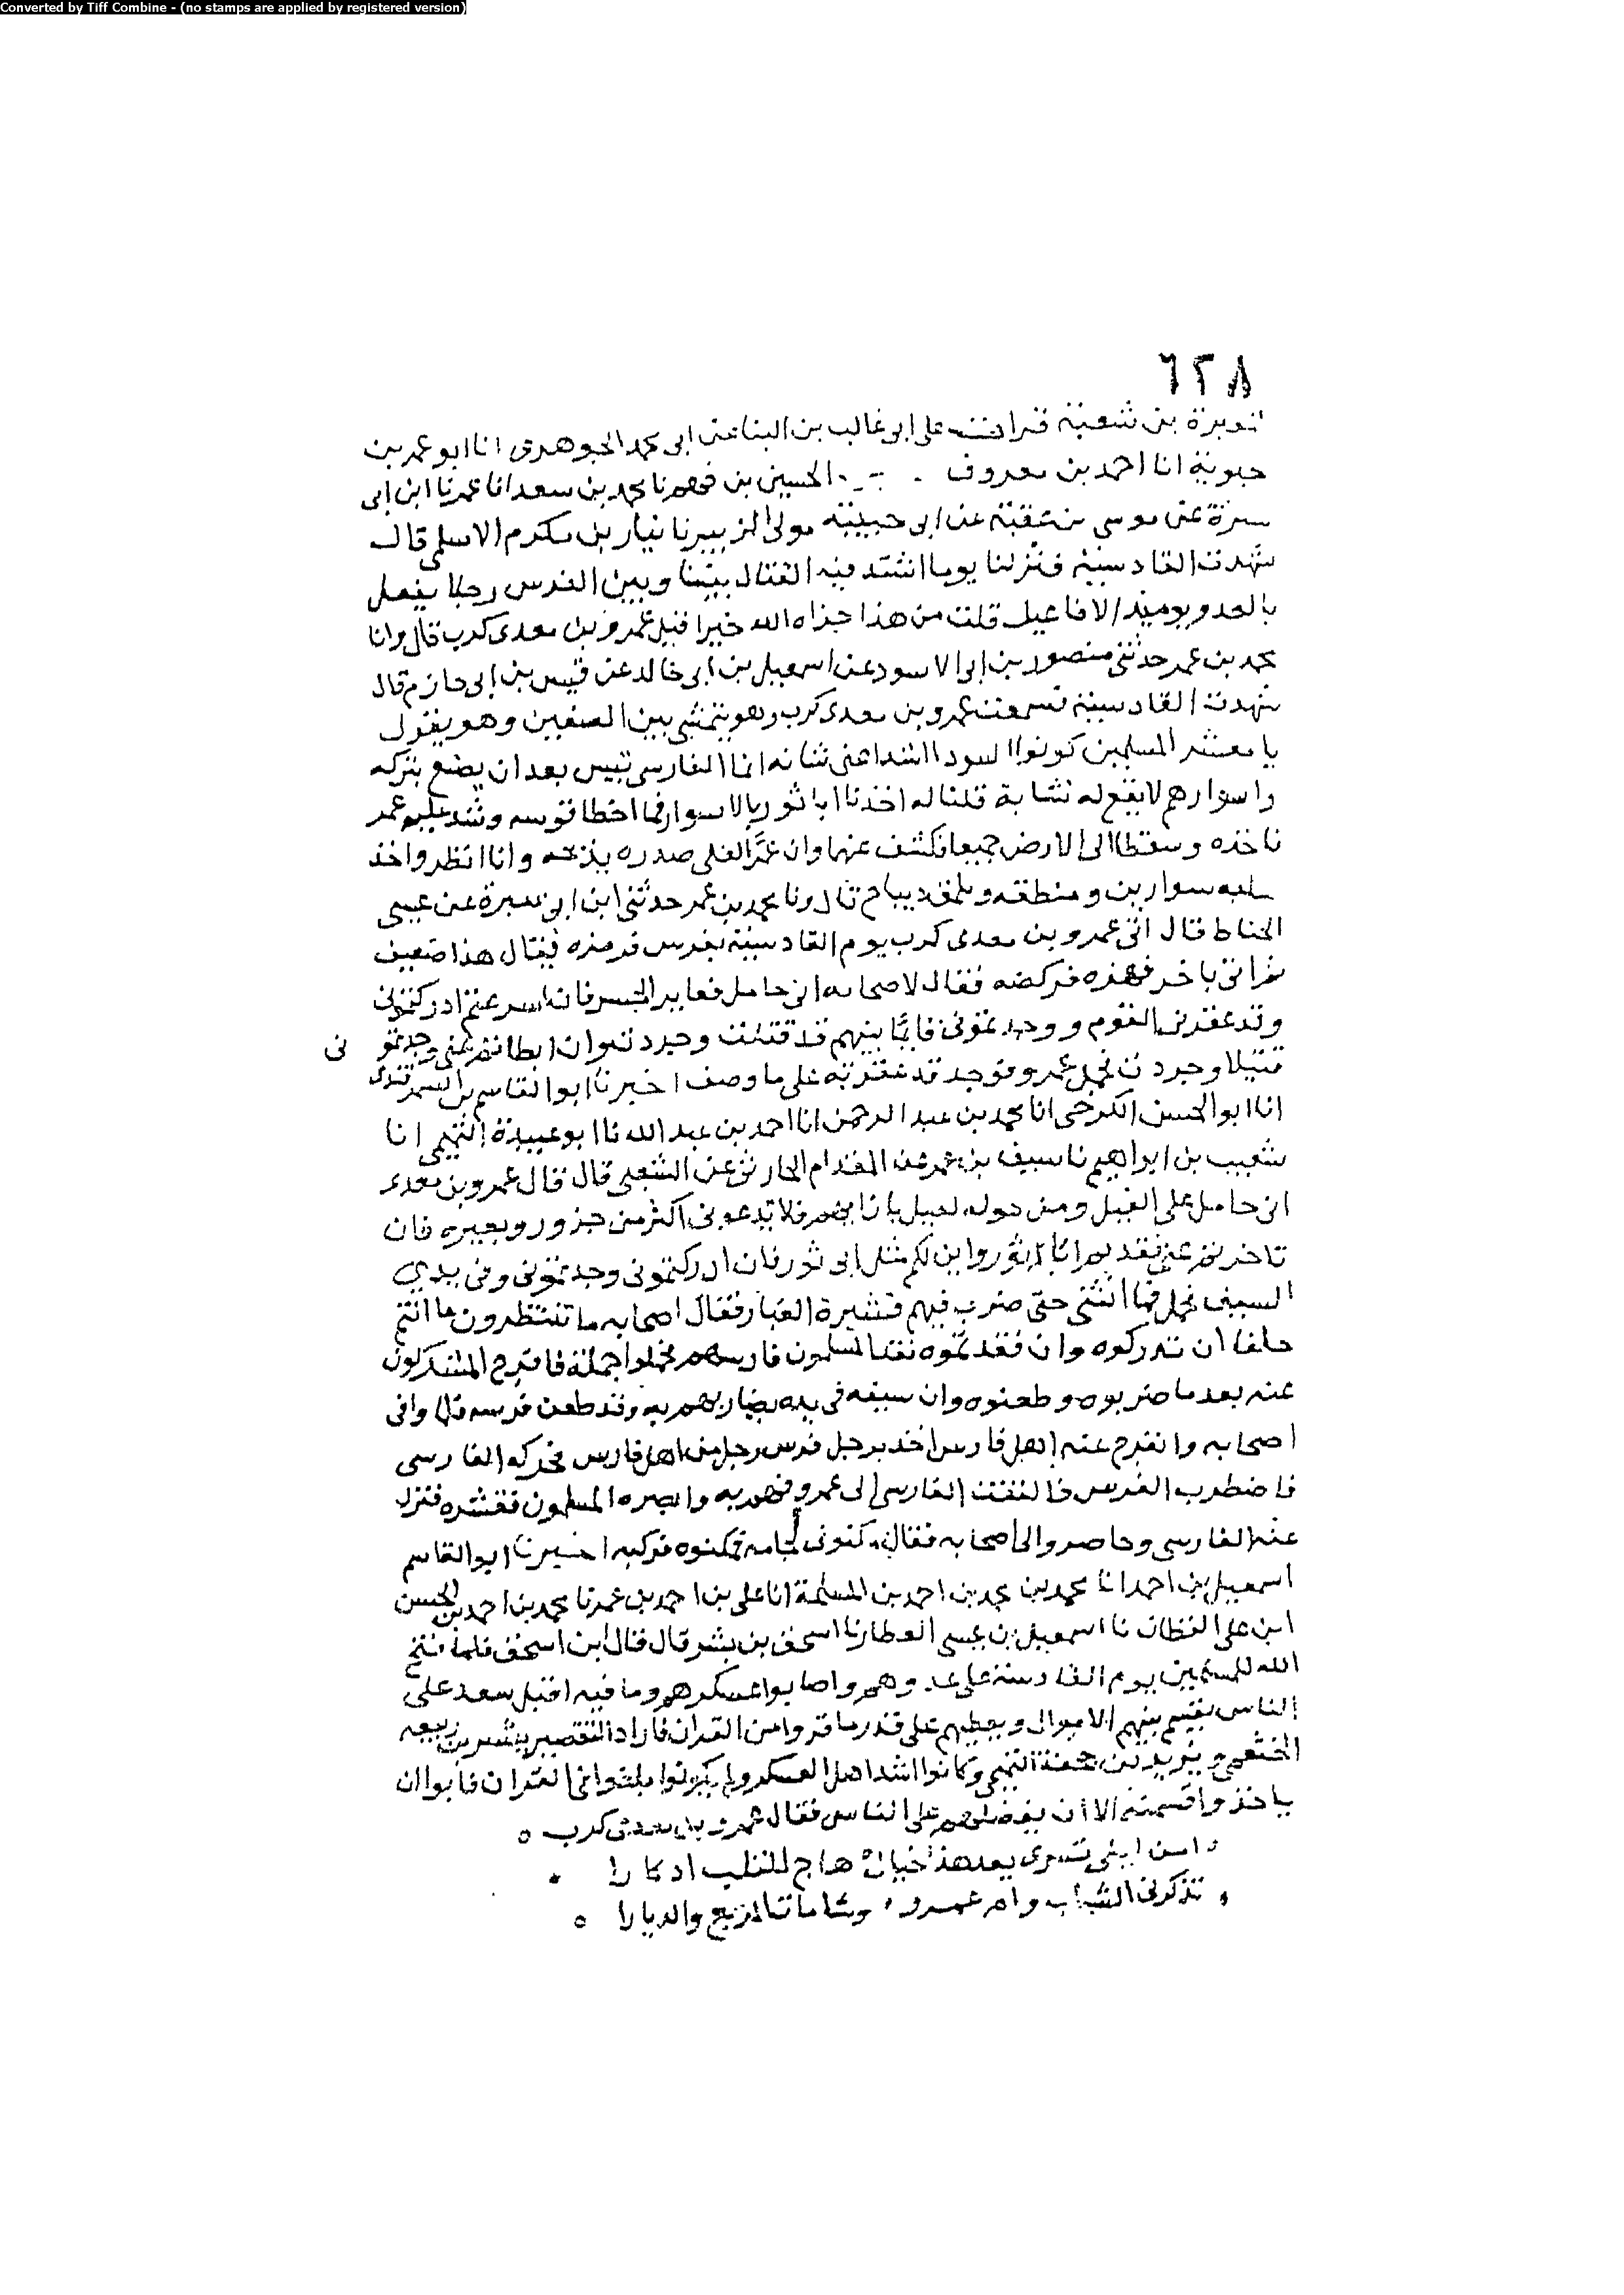 Converted by Tiff Combine - (no stamps are applied by registered version)
٦٢٨
بن شعبة قرات على ابى غالب بن البنا عن ابى محمد الجوهرى انا ابو عمر بن
حيوية انا احمد بن معروف الحسين بن فهم نا محمد بن سعد انا محمد بن عمر نا ابن ابى
سبرة عن موسى بن عقبة عن ابى حبيبة مولى الزبير نا نيار بن مكرم الاسلمى قال
شهدت القادسية فنزلنا يوما اشتد فيه القتال بيننا وبين الفرس رجلا يفعل
بالعدو يوميذ الافاعيل قلت من هذا جزاه الله خيرا قيل عمرو بن معدى كرب قال وانا
محمد بن عمر حدثنى منصور بن ابى الاسود عن اسمعيل بن ابى خالد عن قيس بن ابى حازم قال
شهدت القادسية فسمعت عمرو بن معدى كرب وهو يتمشى بين الصفين وهو يقول
يا معشر المسلمين كونوا اسودا اشدا عنى شانه انما الفارسى تيس بعد ان يضع نيزكه
واسوارهم لا يقع له نشابة قلنا له اخذنا ابا ثور بالاسوار فما اخطا قوسه وشد عليه عمر
فاخذه وسقطا الى الارض جميعا فكشف عنهما وان عمرا لعلى صدره يذبحه وانا انظر واخذ
سلبه سوارين ومنطقه ويلمق ديباج قال ونا محمد بن عمر حدثنى ابن ابى سبرة عن عيسى
الخياط قال اتى عمرو بن معدى كرب يوم القادسية بفرس فهزه فقال هذا ضعيف
ثم اتى باخر فهزه فركضه فقال لاصحابه انى حامل فعابر الجسر فان اسرعتم ادركتمونى
وقد عقر بى القوم ووجدتمونى قايما بينهم قد قتلت وجردت وان ابطاتم عنى وجدتمونى
قتيلا وجردت فحمل عمرو فوجد قد عقر به على ما وصف اخبرنا ابو القاسم بن السمرقندى
انا ابو الحسن الكرخى انا محمد بن عبد الرحمن انا احمد بن عبد الله نا ابو عبيدة التيمى انا
شعيب بن ابراهيم نا سيف بن عمر عن المقدام الحارثى عن الشعبى قال قال عمرو بن معدى
انى حامل على الفيل ومن حوله فلا تدعونى اكثر من جزور وبعيره فان
تاخرتم عنى فقدتم ابا ثور واين لكم مثل ابى ثور فان ادركتمونى وجدتمونى وفى يدي
السيف فحمل فما انثنى حتى ضرب فيهم فشيرة الغبار فقال اصحابه ما تنتظرون ما انتم
خلفا ان تدركوه وان فقدتموه فقد المسلمون فارسهم فحملوا حملة فافرج المشركون
عنه بعد ما ضربوه وطعنوه وان سيفه فى يده يضاربهم به وقد طعن فرسه فلما وافى
اصحابه وانفرج عنه اهل فارس اخذ برجل فرس رجل من اهل فارس فحركه الفارسى
فاضطرب الفرس فالتفت الفارسى الى عمرو فهم به وابصره المسلمون فغشوه فنزل
عنه الفارسى وحاضر والى اصحابه فقال امكنونى لجامه فمكنوه فركبه اخبرنا ابو القاسم
اسمعيل بن احمد انا محمد بن محمد بن احمد بن المسلمة انا على بن احمد بن عمر نا محمد بن احمد بن الحسن
ابن على القطان نا اسمعيل بن عيسى العطار نا اسحق بن بشر قال قال ابن اسحق فلما فتح
الله للمسلمين يوم القادسية على عدوهم واصابوا عسكرهم وما فيه اقبل سعد على
الناس يقسم بينهم الاموال ويعطيهم على قدر ما قروا من القران فاراد التقصير ببشر بن ربيعه
الخثعمى ويزيد بن جحفة التيمى وكانوا اشد اهل العسكر ولم يكونوا بلغوا فى القران فابوا ان
ياخذوا قسمته الا ان يفضلهم على الناس فقال عمرو بن معدى كرب ٥
امن ليلى تسرى بعد هذا خيال هاج للقلب ادكارا
تذكرنى الشباب وام عمرو ، وشاماتنا المربع والديارا ٥